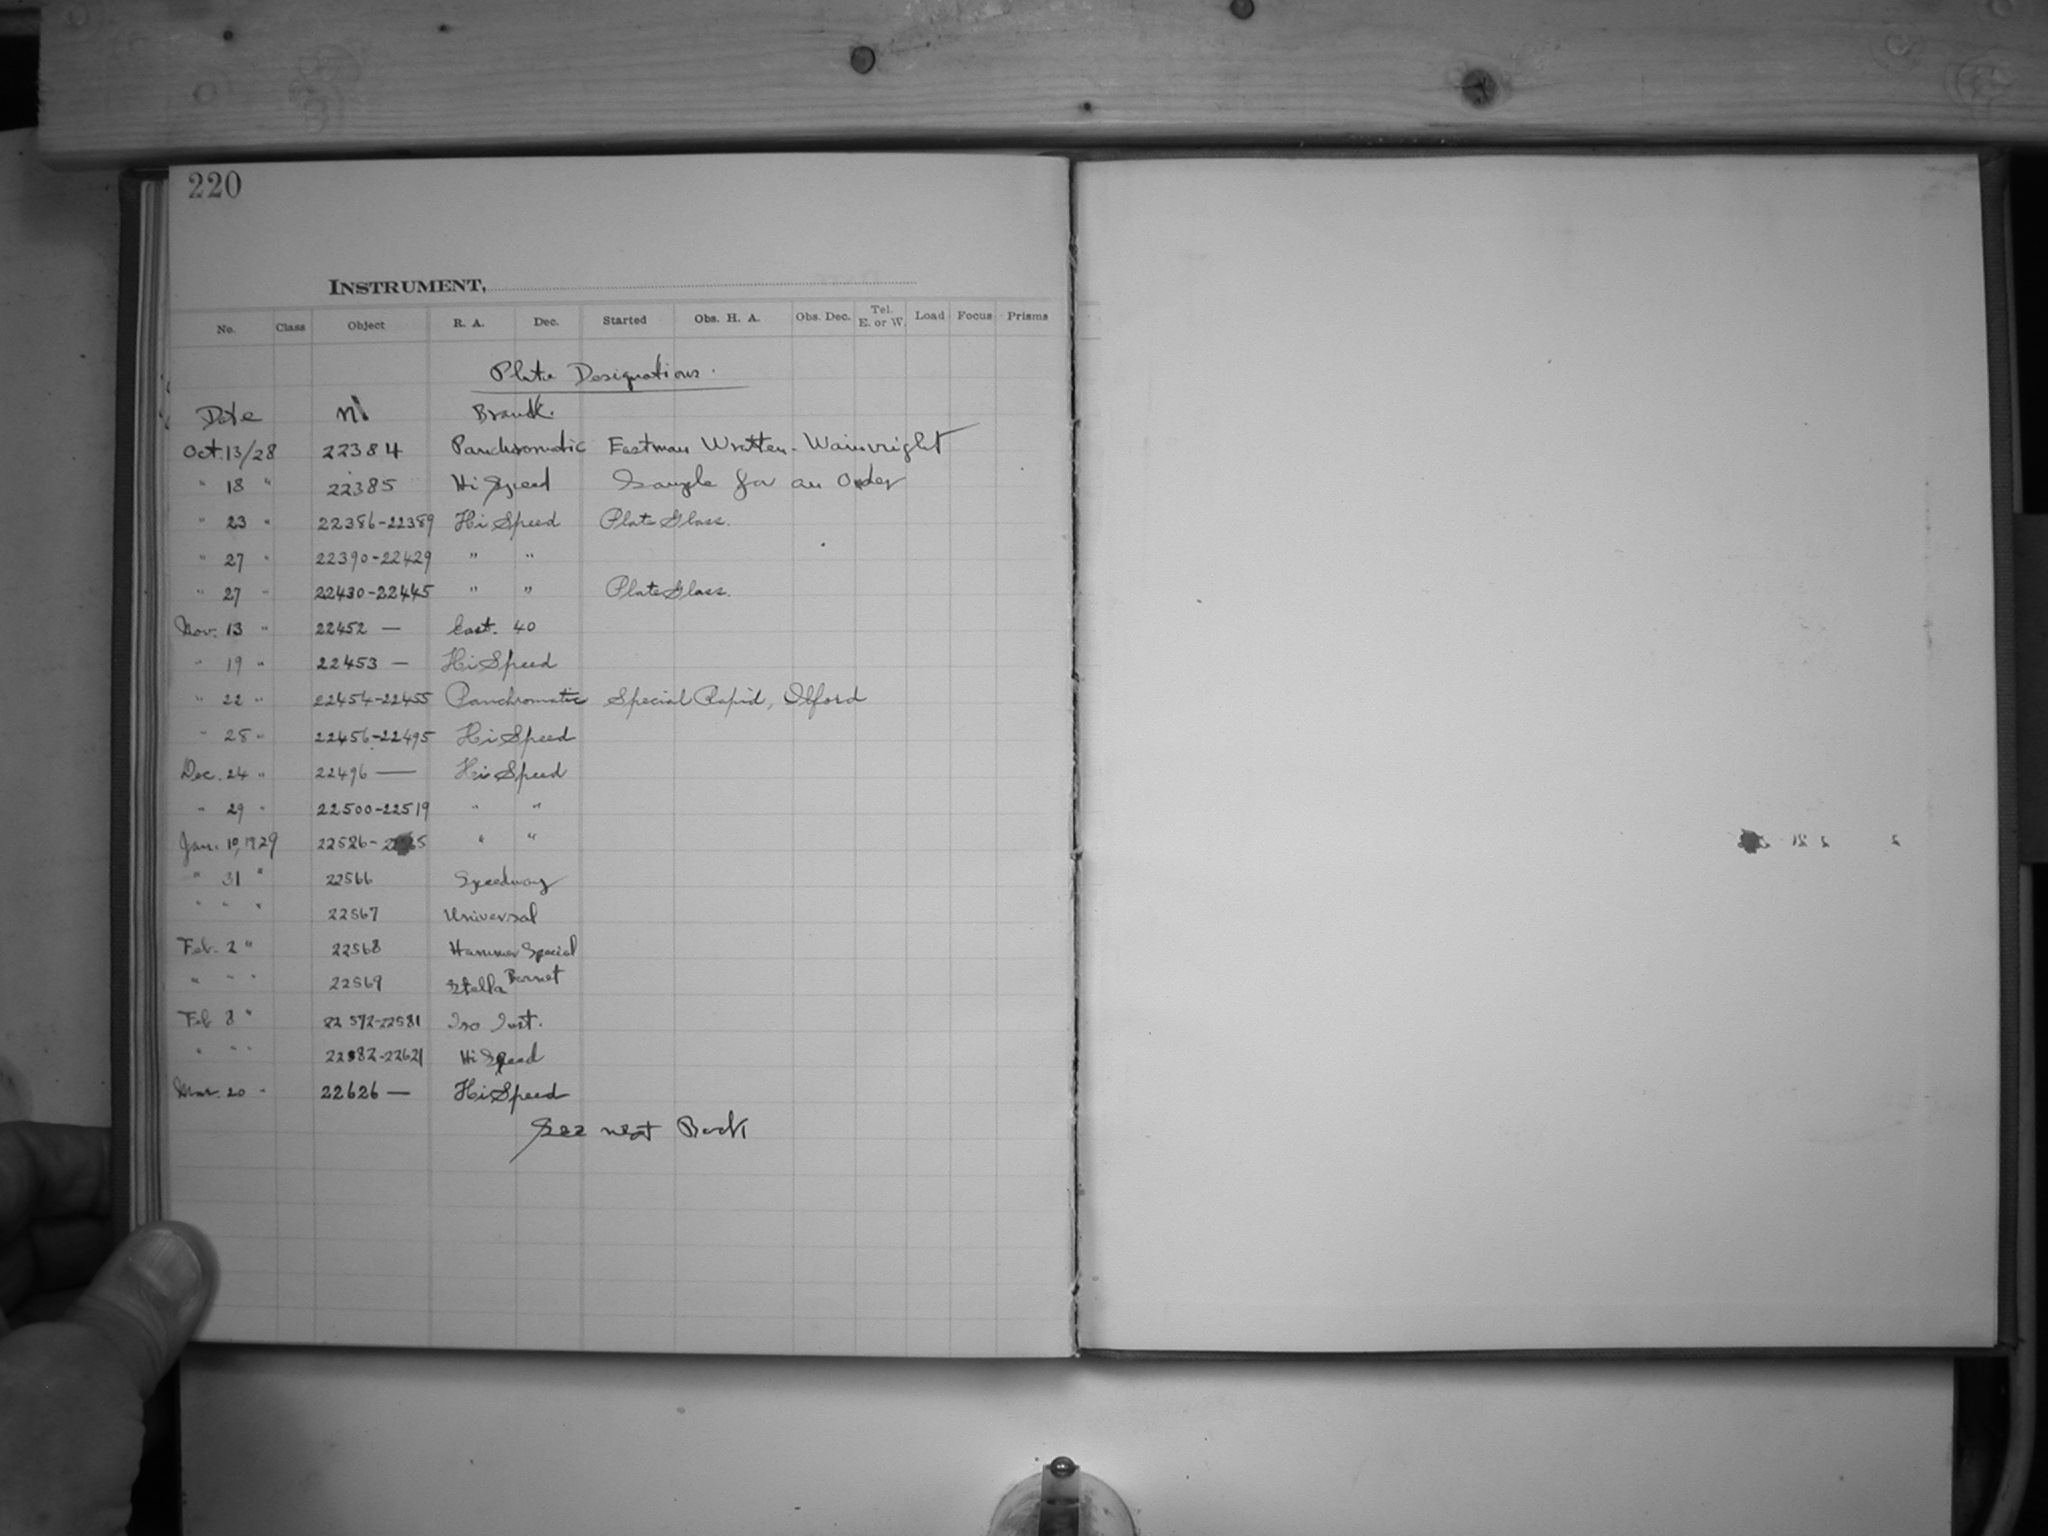 220
INSTRUMENT,
No. Class Object R. A. Dec. Started Obs. H. A. Obs. Dec. Tel. E. or W. Load Focus Prisms
Plate Designations.
Date No Brand.
Oct. 13/28 22384 Panchromatic Eastman Wratten-Wainwright
" 18 " 22385 Hi Speed Sample for an Order
" 23 " 22386-22389 Hi Speed Plate Glass.
" 27 " 22390-22429 " "
" 27 " 22430-22445 " " Plate Glass.
Nov. 13 " 22452 — East. 40
" 19 " 22453 — Hi Speed
" 22 " 22454-22455 Panchromatic Special Rapid, Ilford
" 28 " 22456-22495 Hi Speed
Dec. 24 " 22496 — Hi Speed
" 29 " 22500-22519 " "
Jan. 10, 1929 22526- " "
" 31 " 22566 Speedway
" " " 22567 Universal
Feb. 2 " 22568 Hammer Special
" " " 22569 Stella Barnet
Feb 8 " 22572-22581 Iso Inst.
" " " 22582-22621 Hi Speed
Mar. 20 " 22626 — Hi Speed
See next Book